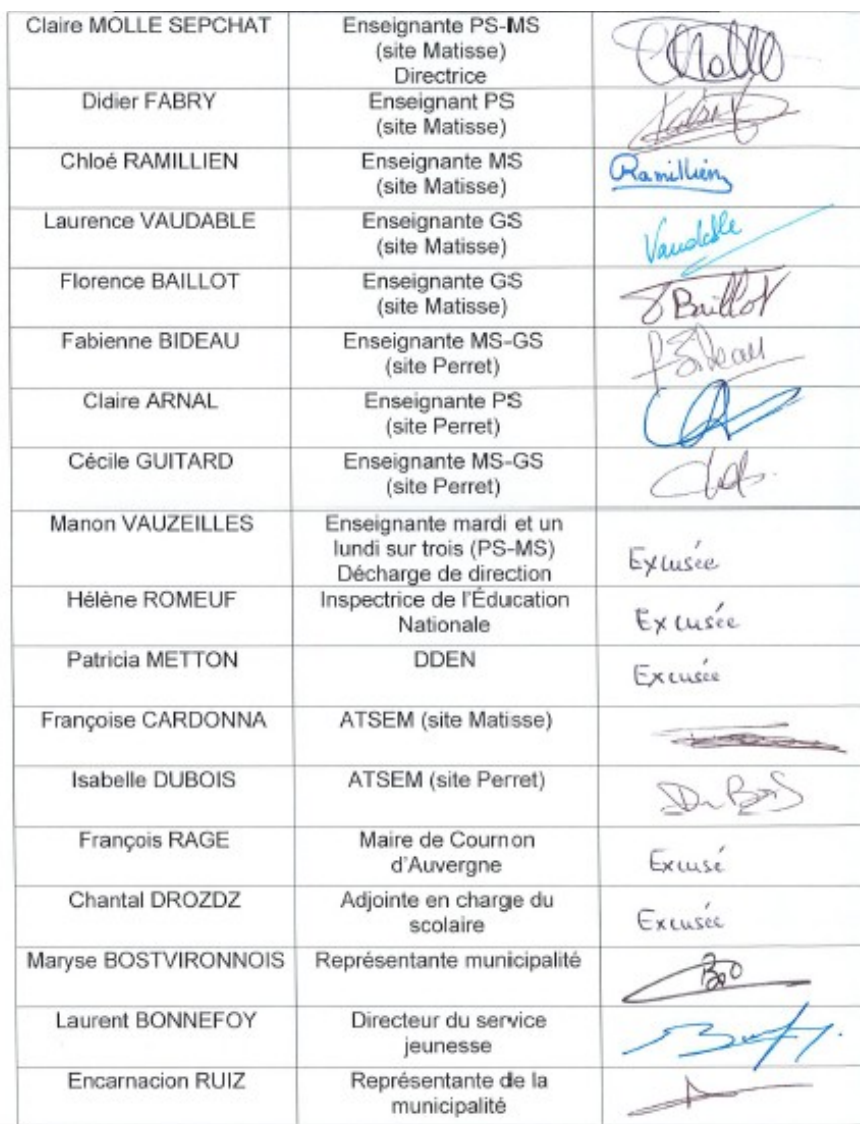 Claire MOLLE SEPCHAT
Enseignante PS-MS
(site Matisse)
Directrice
Didier FABRY
Enseignant PS
(site Matisse)
Chloé RAMILLIEN
Enseignante MS
(site Matisse)
Ramillien
Laurence VAUDABLE
Enseignante GS
(site Matisse)
Vaudable
Florence BAILLOT
Enseignante GS
(site Matisse)
Baillot
Fabienne BIDEAU
Enseignante MS-GS
(site Perret)
Claire ARNAL
Enseignante PS
(site Perret)
Cécile GUITARD
Enseignante MS-GS
(site Perret)
Manon VAUZEILLES
Enseignante mardi et un
lundi sur trois (PS-MS)
Décharge de direction
Excusée
Hélène ROMEUF
Inspectrice de l'Éducation
Nationale
Excusée
Patricia METTON
DDEN
Excusée
Françoise CARDONNA
ATSEM (site Matisse)
Isabelle DUBOIS
ATSEM (site Perret)
DuBois
François RAGE
Maire de Cournon
d'Auvergne
Excusé
Chantal DROZDZ
Adjointe en charge du
scolaire
Excusée
Maryse BOSTVIRONNOIS
Représentante municipalité
Laurent BONNEFOY
Directeur du service
jeunesse
Encarnacion RUIZ
Représentante de la
municipalité